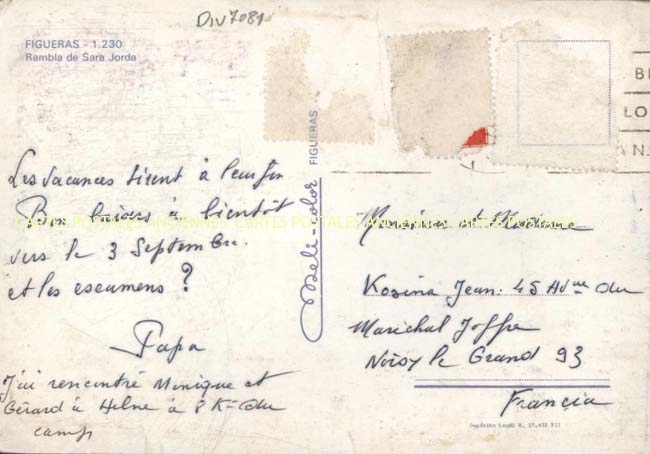 DIV7081
FIGUERAS - 1.230
Rambla de Sara Jorda
Les vacances tirent à leur fin
Bon baisers à bientôt
vers le 3 Septembre.
et les examens ?
Papa
J'ai rencontré Monique et
Gérard à Helne à 8 K= du
camp
Meli-color FIGUERAS
CARTES POSTALES ANCIENNES CARTES POSTALES ANCIENNES CARTES POSTALES
Kosina Jean: 45 Avue du
Maréchal Joffre
Noisy le Grand 93
Francia
Depósito Legal B. 27.432 XII
B
LO
N